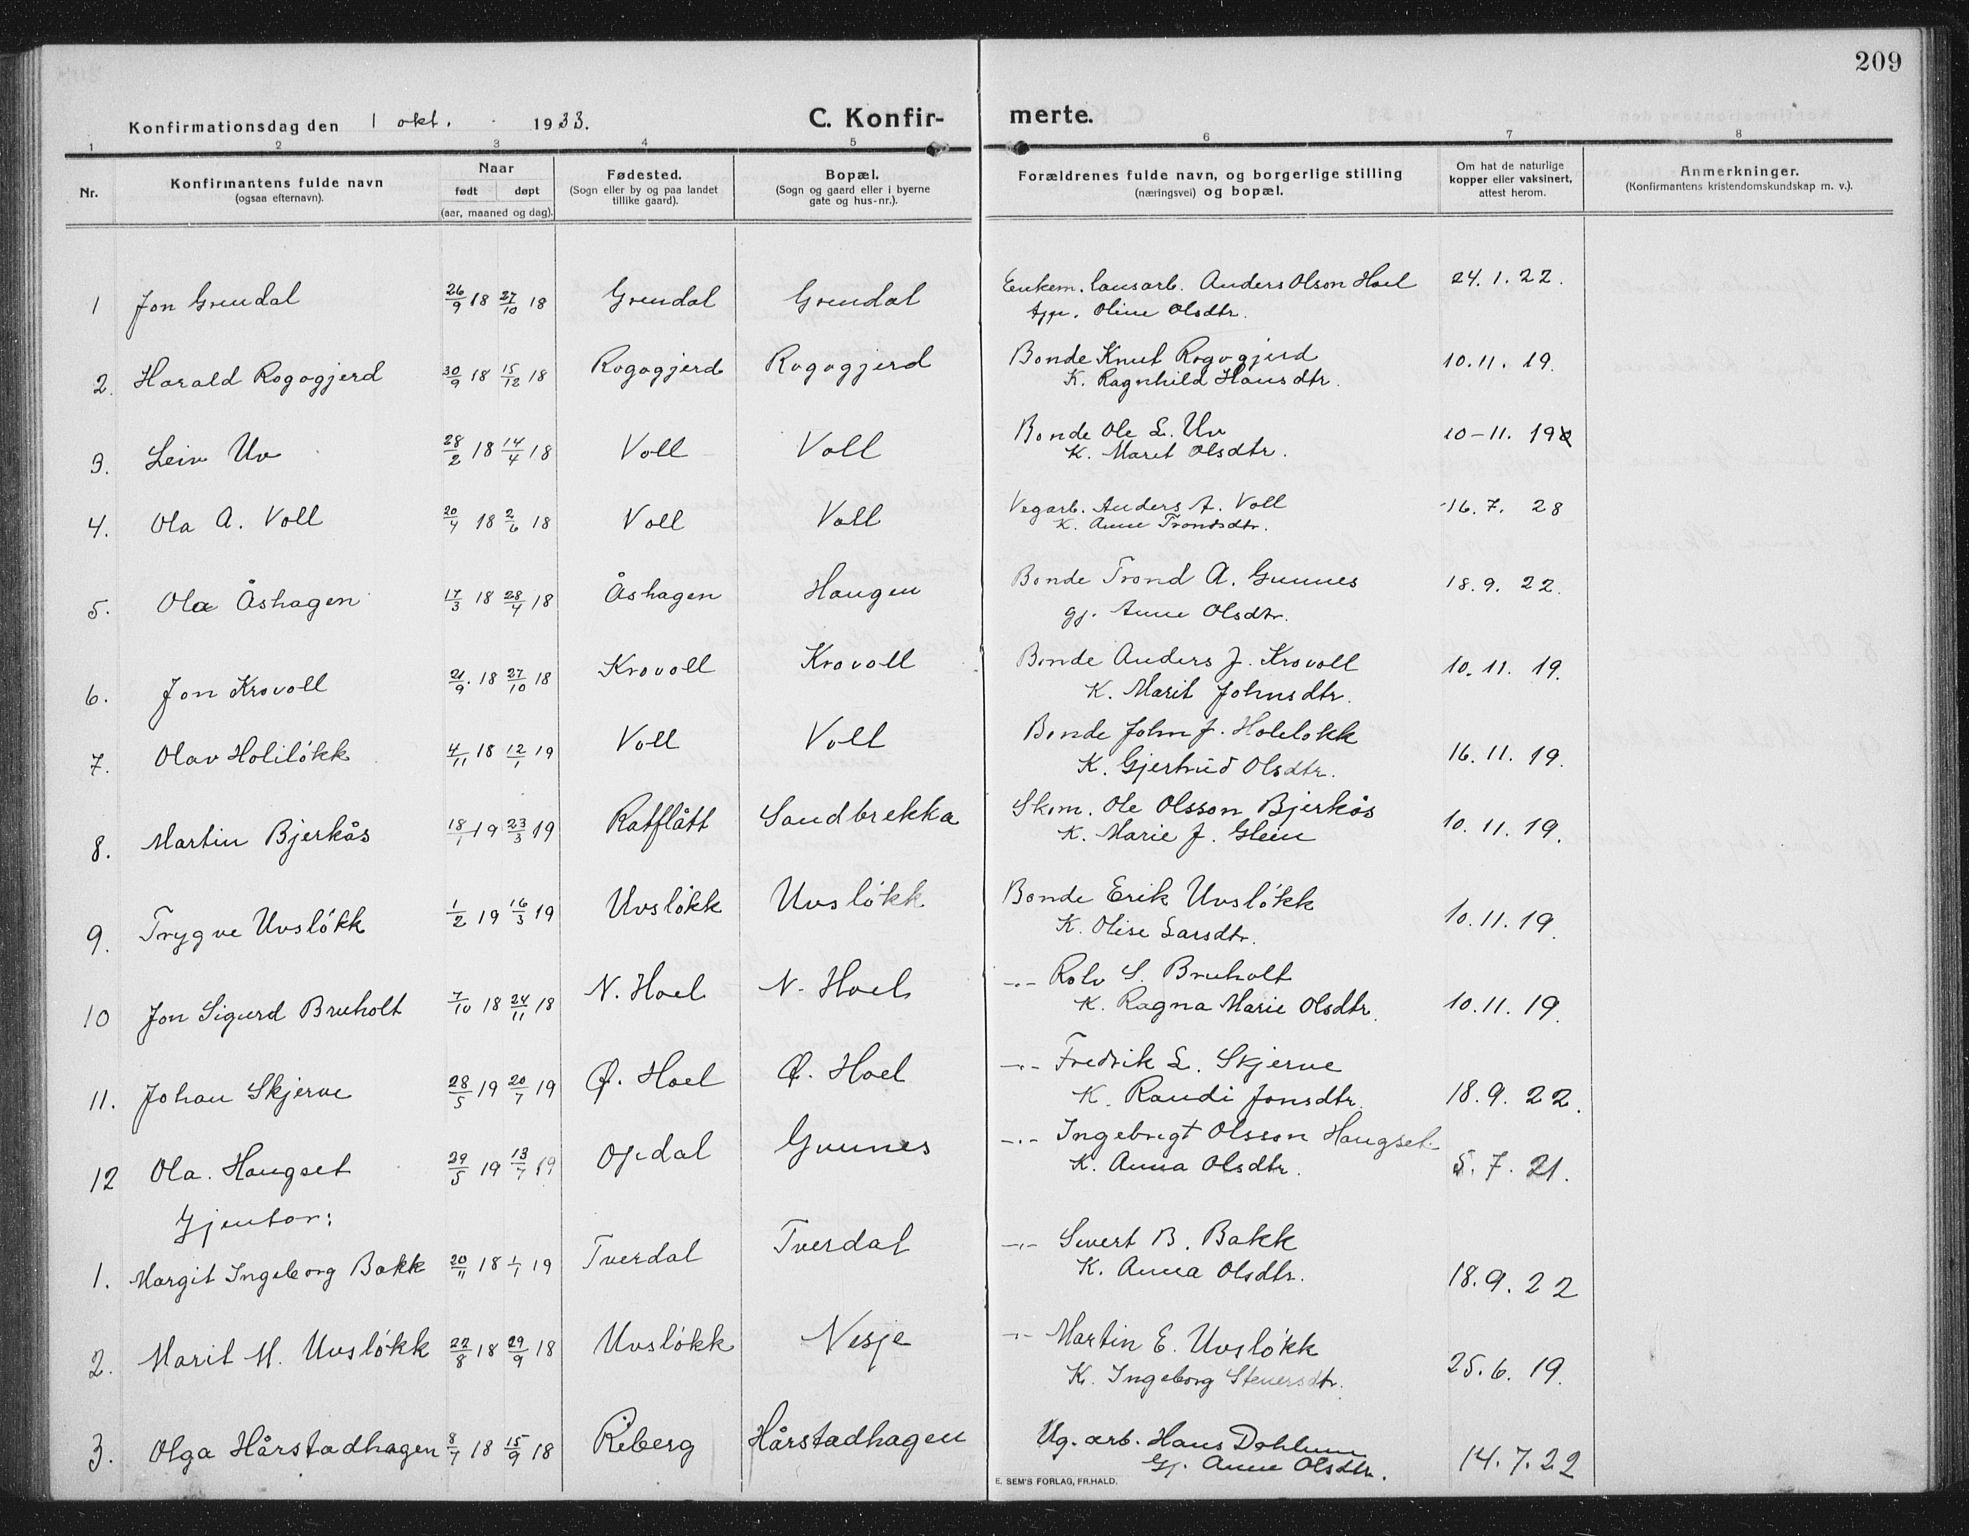 209
Konfirmationsdag den 1 okt. 1933. C. Konfirmerte.
1 2 3 4 5 6 7 8
Nr. Konfirmantens fulde navn (ogsaa efternavn). Naar født døpt (aar, maaned og dag). Fødested. (Sogn eller by og paa landet tillike gaard). Bopæl. (Sogn og gaard eller i byerne gate og hus-nr.). Forældrenes fulde navn, og borgerlige stilling (næringsvei) og bopæl. Om hat de naturlige kopper eller vaksinert, attest herom. Anmerkninger. (Konfirmantens kristendomskundskap m. v.).
1 Jon Grendal 26/9 18 27/10 18 Grendal Grendal Enkem. lausarb. Anders Olson Hoel 24. 1. 22.
Oline Olsdtr.
2. Harald Rogogjerd 30/9 18 15/12 18 Rogogjerd Rogogjerd Bonde Knut Rogogjerd 10. 11. 19.
K. Ragnhild Hansdtr.
3. Leiv Uv 28/2 18 14/4 18 Voll Voll Bonde Ole L. Uv 10-11. 19
K. Marit Olsdtr.
4. Ola A. Voll 20/4 18 2/6 18 Voll Voll Vegarb. Anders A. Voll 16. 7. 28
K. Anne Trondsdtr.
5. Ola Åshagen 17/3 18 28/4 18 Åshagen Haugen Bonde Trond A. Gunnes 18. 9. 22.
gj. Anne Olsdtr.
6. Jon Krovoll 21/9. 18 27/10 18 Krovoll Krovoll Bonde Anders J. Krovoll 10. 11. 19.
K. Marit Johnsdtr.
7. Olav Holiløkk 4/11 18 12/1 19 Voll Voll Bonde John J. Holeløkk 16. 11. 19.
K. Gjertrud Olsdtr.
8. Martin Bjerkås 18/1 19 23/3 19 Ratflått Sandbrekka Skom. Ole Olsson Bjerkås 10. 11. 19.
K. Marie J. Glein
9. Trygve Uvsløkk 1/2 19 16/3 19 Uvsløkk Uvsløkk Bonde Erik Uvsløkk 10. 11. 19.
K. Olise Larsdtr.
10 Jon Sigurd Bruholt 7/10 18 24/11 18 N. Hoel N. Hoel -"- Rolv S. Bruholt 10. 11. 19.
K. Ragna Marie Olsdtr.
11. Johan Skjerve 28/5 19 20/7 19 Ø. Hoel Ø. Hoel -"- Fredrik L. Skjerve
K. Randi Jonsdtr. 18. 9. 22.
12 Ola. Haugset 29/5 19 13/7 19 Opdal Gunnes -"- Ingebrigt Olsson Haugset.
K. Anna Olsdtr. 5. 7. 21.
Gjentor:
1. Margit Ingeborg Bakk 20/11 18 1/1 19 Tverdal Tverdal -"- Sivert B. Bakk
K. Anna Olsdtr. 18. 9. 22
2. Marit M. Uvsløkk 22/8 18 29/9 18 Uvsløkk Nesje -"- Martin E. Uvsløkk
K. Ingeborg Steversdtr. 25. 6. 19.
3. Olga Hårstadhagen 8/7 18 15/9 18 Riberg Hårstadhagen Ug. arb. Hans Dahlum 14. 7. 22
Gj. Anne Olsdtr.
E. SEM'S FORLAG, FR.HALD.